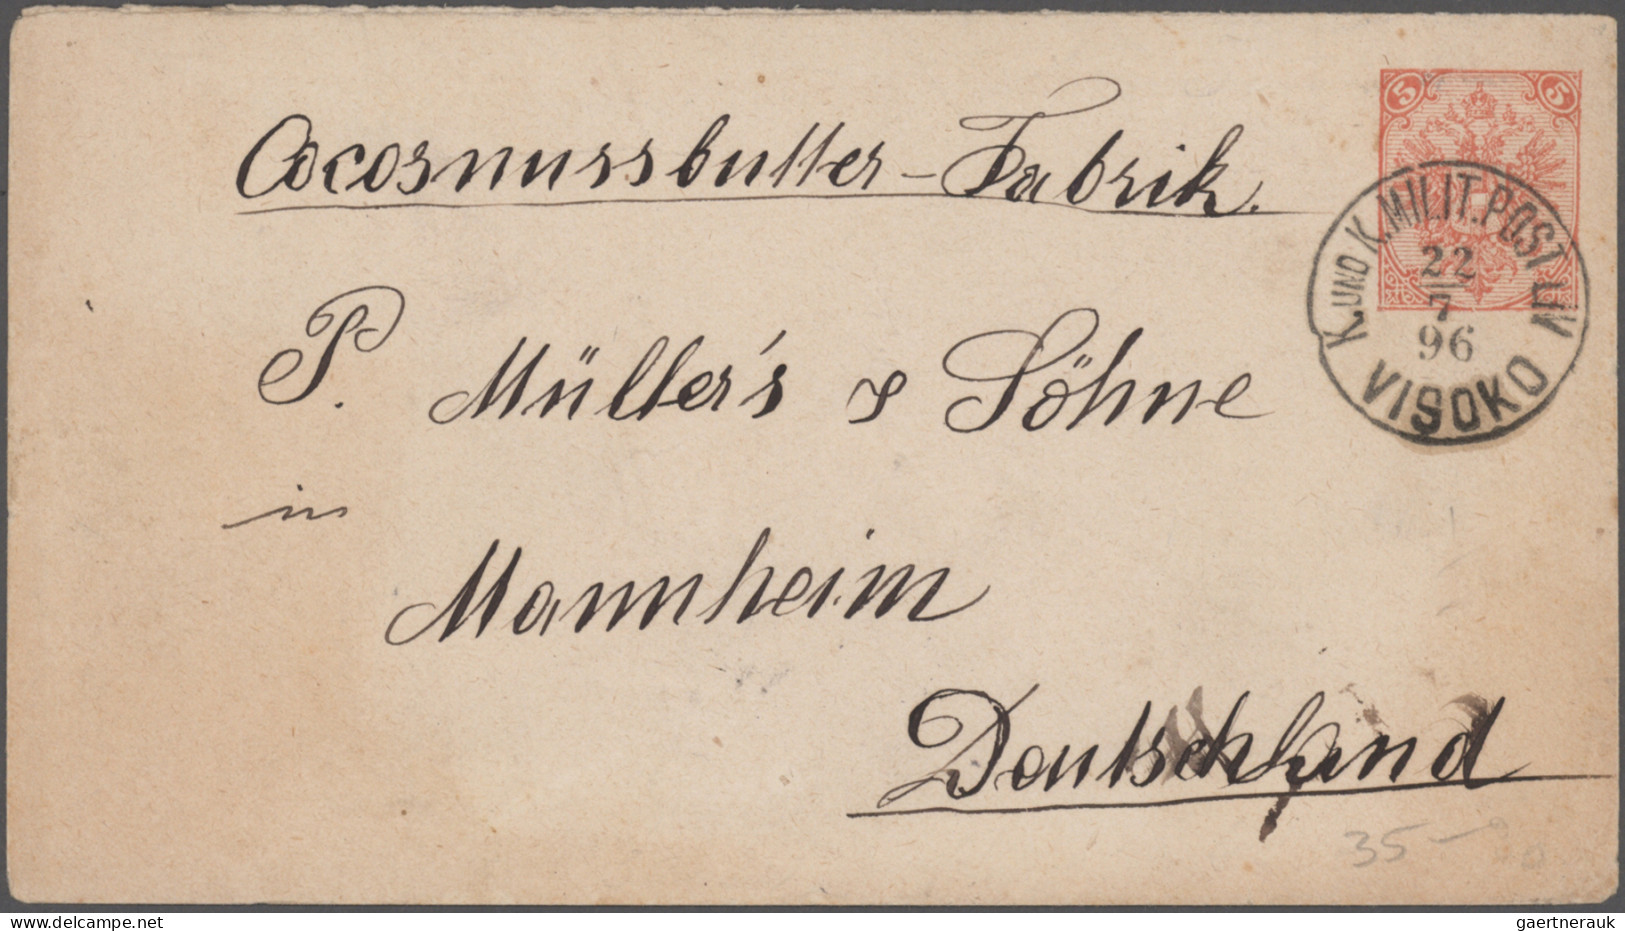 5 5
Cocosnussbutter-Fabrik.
K. UND K. MILIT. POST
22
7
96
VISOKO
P. Müller's & Söhne
in
Mannheim
Deutschland
35-
delcampe.net
gaertnerauk